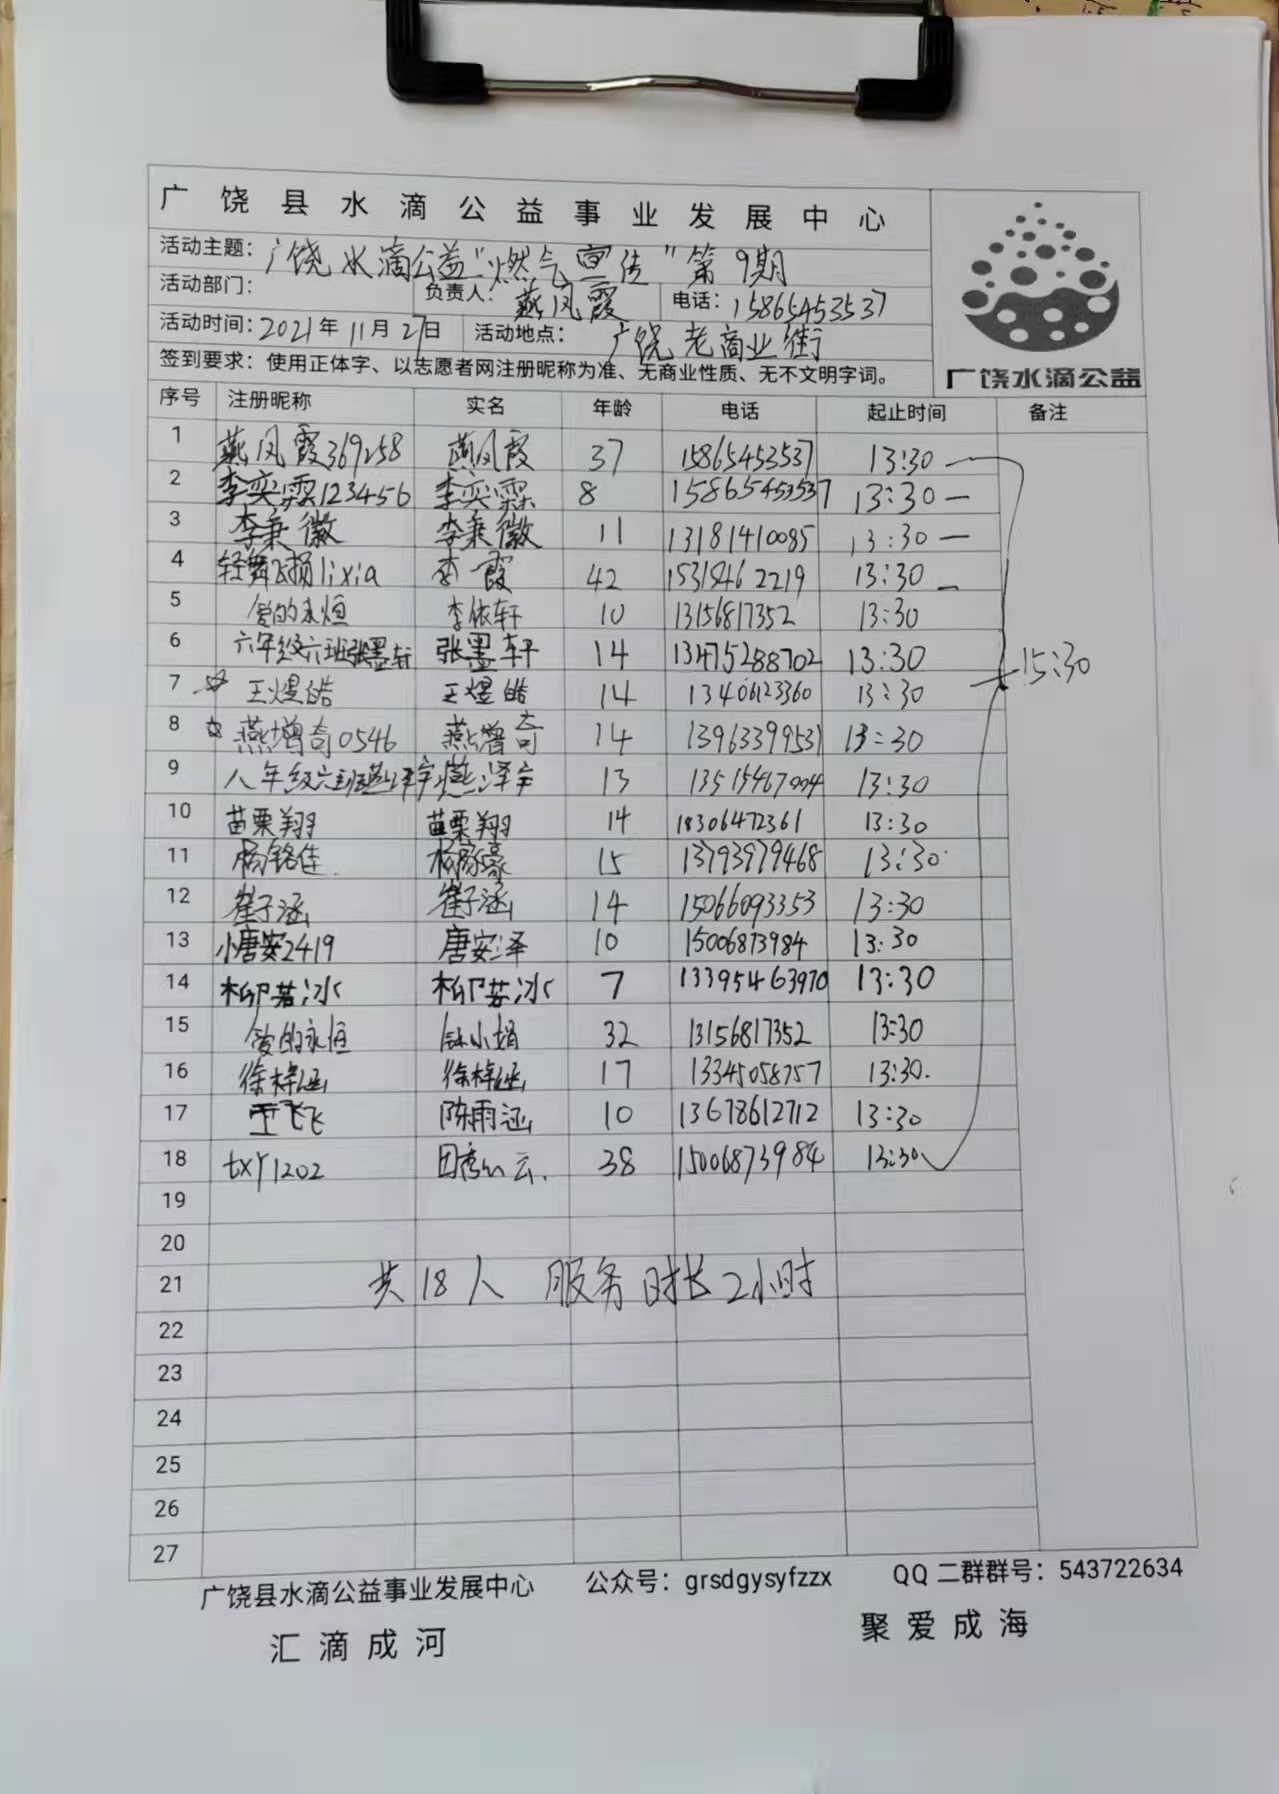 广饶县水滴公益事业发展中心
活动主题：广饶水滴公益“燃气宣传”第9期
活动部门： 负责人：燕凤霞 电话：15865453537
活动时间：2021年11月27日 活动地点：广饶老商业街
签到要求：使用正体字、以志愿者网注册昵称为准、无商业性质、无不文明字词。
广饶水滴公益
序号 注册昵称 实名 年龄 电话 起止时间 备注
1 燕凤霞369258 燕凤霞 37 15865453537 13:30 —
2 李奕霖123456 李奕霖 8 15865453537 13:30 —
3 李秉徽 李秉徽 11 13181410085 13:30 —
4 轻舞飞扬lixia 李霞 42 15315462219 13:30 —
5 爱的永恒 李依轩 10 13156817352 13:30
6 六年级六班张墨轩 张墨轩 14 13475288702 13:30
15:30
7 ☆ 王煜皓 王煜皓 14 13406123360 13:30
8 ☆ 燕增奇0546 燕增奇 14 13963399531 13:30
9 八年级六班燕泽宇 燕泽宇 13 13515467004 13:30
10 苗栗翔 苗栗翔 14 18306472361 13:30
11 杨铭佳 杨家豪 15 13793979468 13:30
12 崔子涵 崔子涵 14 15066093353 13:30
13 小唐安2419 唐安泽 10 15006873984 13:30
14 柳若冰 柳若冰 7 13395463970 13:30
15 爱的永恒 小娟 32 13156817352 13:30
16 徐梓涵 徐梓涵 17 13345058757 13:30.
17 王飞飞 陈雨涵 10 13678612712 13:30
18 txy1202 云. 38 15006873984 13:30
19
20
21 共18人 服务时长2小时
22
23
24
25
26
27
广饶县水滴公益事业发展中心 公众号：grsdgysyfzzx QQ 二群群号：543722634
汇滴成河 聚爱成海